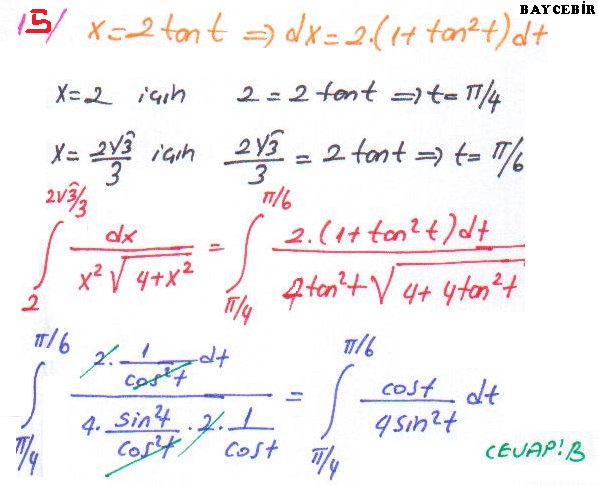 BAYCEBİR
15/ x=2tant ⇒ dx=2.(1+tan²t)dt
x=2 için 2=2tant ⇒ t=π/4
x=2√3/3 için 2√3/3=2tant ⇒ t=π/6
∫_2^{2√3/3} dx/(x²√(4+x²)) = ∫_{π/4}^{π/6} 2.(1+tan²t)dt/(4tan²t√(4+4tan²t))
∫_{π/4}^{π/6} (2.(1/cos²t)dt)/(4.(sin²t/cos²t).2.(1/cost)) = ∫_{π/4}^{π/6} cost/(4sin²t) dt
CEVAP:B